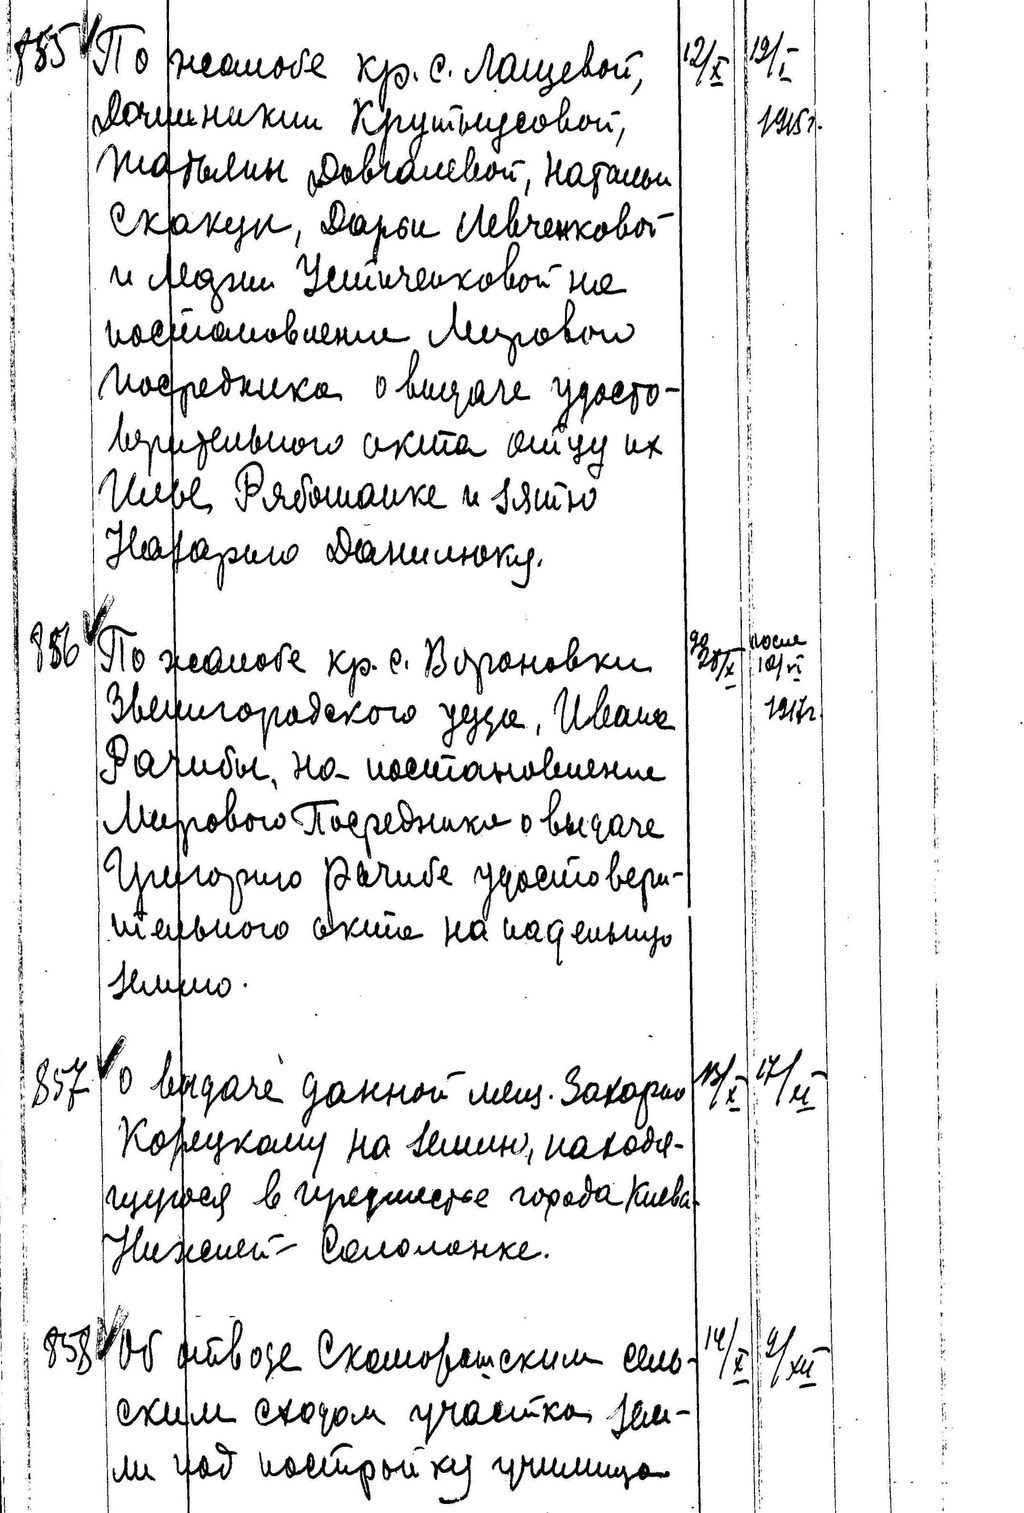 855 По жалобе кр. с. Лащевой, 12/X 19/I
Домникии Крутоусовой, 1915г.
Татьяны Довгалевой, Натальи
Скакун, Дарьи Левченковой
и Лидии Устиченковой на
постановление Мирового
посредника о выдаче удосто-
верительного акта отцу их
Илье Рябошапке и зятю
Назарию Данилюку.
856 По жалобе кр. с. Вороновки 28/X после
Звенигородского уезда, Ивана 1917г.
Рачибы, на постановление
Мирового Посредника о выдаче
Григорию Рачибе удостовери-
тельного акта на надельную
землю.
857 О выдаче данной мещ. Захарию 13/X 17/XI
Корецкому на землю, находя-
щуюся в предместье города Киева
Нижней Соломенке.
858 Об отводе Скоморошским сель- 14/X 9/XII
ским сходом участка зем-
ли под постройку училища